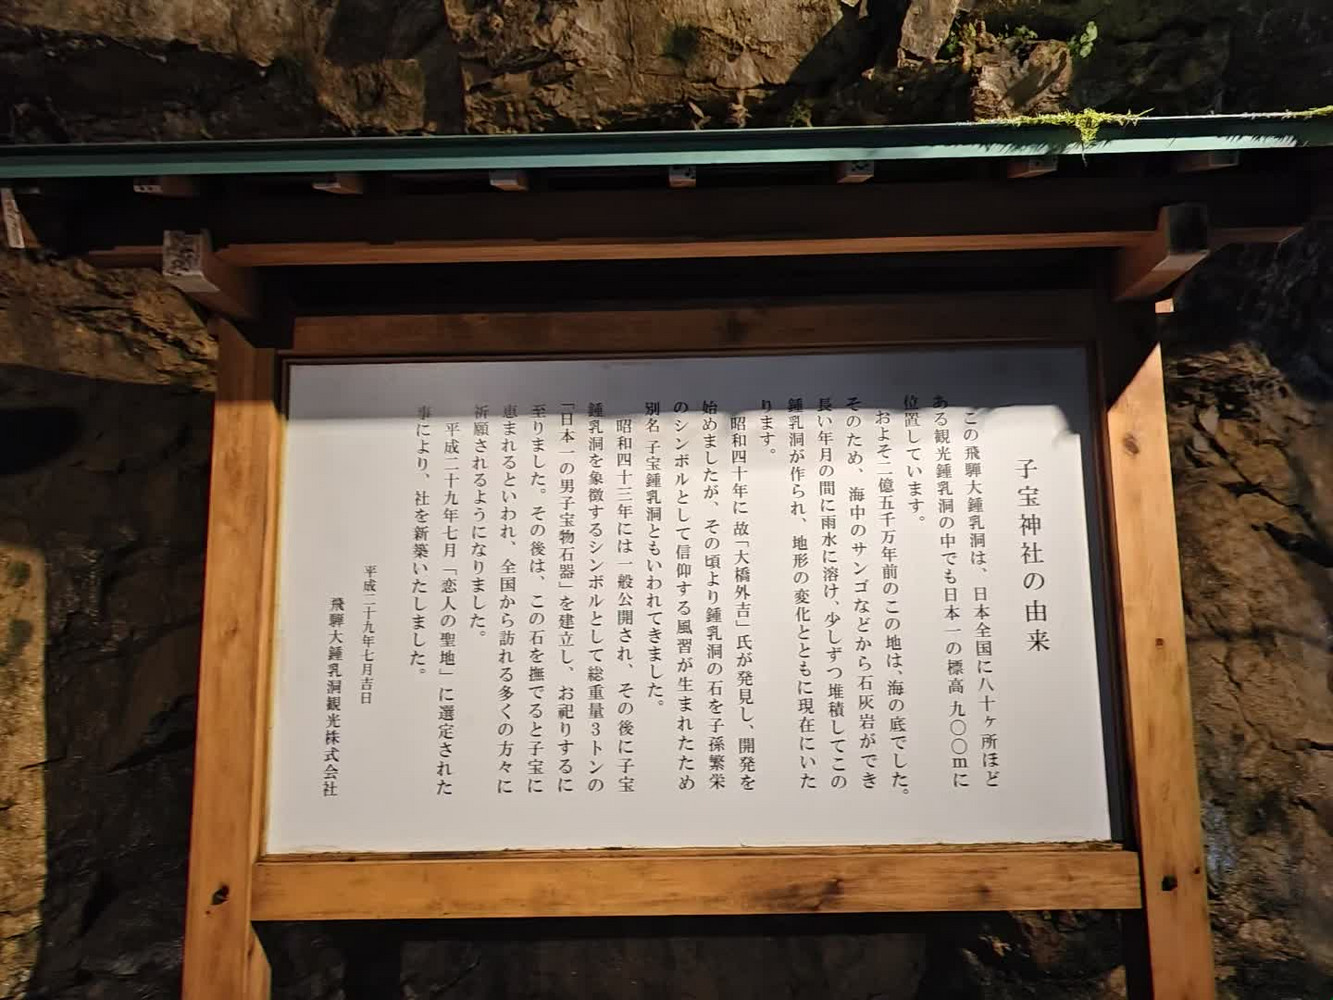 子宝神社の由来
この飛騨大鍾乳洞は、日本全国に八十ヶ所ほど
ある観光鍾乳洞の中でも日本一の標高九〇〇mに
位置しています。
およそ二億五千万年前のこの地は、海の底でした。
そのため、海中のサンゴなどから石灰岩ができ
長い年月の間に雨水に溶け、少しずつ堆積してこの
鍾乳洞が作られ、地形の変化とともに現在にいた
ります。
昭和四十年に 故「大橋外吉」氏が発見し、開発を
始めましたが、その頃より鍾乳洞の石を子孫繁栄
のシンボルとして信仰する風習が生まれたため
別名 子宝鍾乳洞ともいわれてきました。
昭和四十三年には一般公開され、その後に子宝
鍾乳洞を象徴するシンボルとして総重量3トンの
「日本一の男子宝物石器」を建立し、お祀りするに
至りました。その後は、この石を撫でると子宝に
恵まれるといわれ、全国から訪れる多くの方々に
祈願されるようになりました。
平成二十九年七月「恋人の聖地」に選定された
事により、社を新築いたしました。
平成二十九年七月吉日
飛騨大鍾乳洞観光株式会社